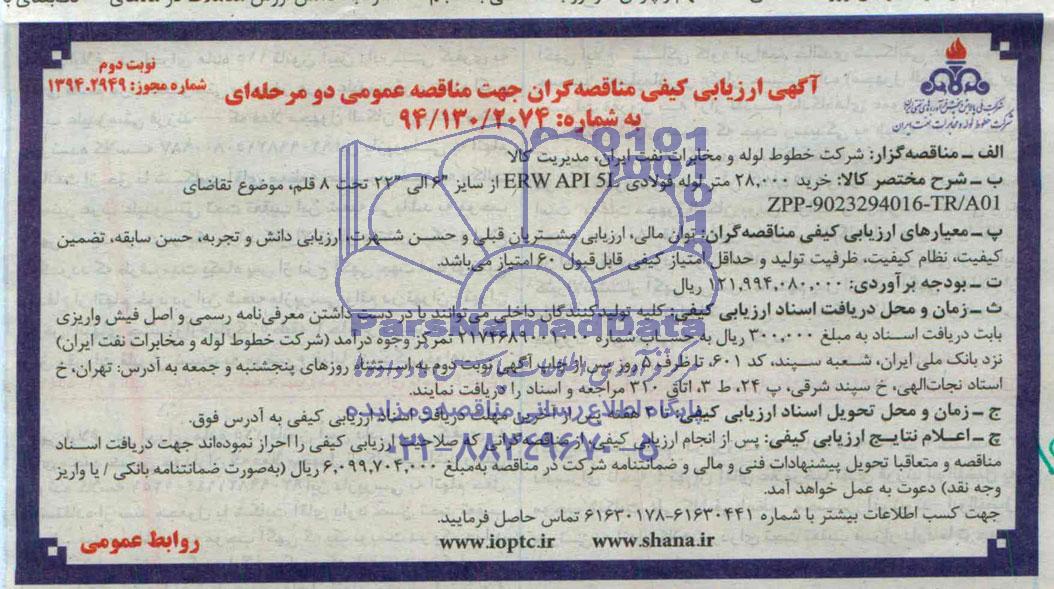 نوبت دوم
شماره مجوز: ۱۳۹۴.۲۹۴۹
شرکت خطوط لوله و مخابرات نفت ایران
آگهی ارزیابی کیفی مناقصه‌گران جهت مناقصه عمومی دو مرحله‌ای
به شماره: ۹۴/۱۳۰/۲۰۷۴
الف ـ مناقصه‌گزار: شرکت خطوط لوله و مخابرات نفت ایران، مدیریت کالا
ب ـ شرح مختصر کالا: خرید ۲۸.۰۰۰ متر لوله فولادی ERW API 5L از سایز "۶ الی "۲۲ تحت ۸ قلم، موضوع تقاضای
ZPP-9023294016-TR/A01
پ ـ معیارهای ارزیابی کیفی مناقصه‌گران: توان مالی، ارزیابی مشتریان قبلی و حسن شهرت، ارزیابی دانش و تجربه، حسن سابقه، تضمین
کیفیت، نظام کیفیت، ظرفیت تولید و حداقل امتیاز کیفی قابل‌قبول ۶۰ امتیاز می‌باشد.
ت ـ بودجه برآوردی: ۱۲۱.۹۹۴.۰۸۰.۰۰۰ ریال
ث ـ زمان و محل دریافت اسناد ارزیابی کیفی: کلیه تولیدکنندگان داخلی می‌توانند با در دست داشتن معرفی‌نامه رسمی و اصل فیش واریزی
بابت دریافت اسناد به مبلغ ۳۰۰.۰۰۰ ریال به حساب شماره ۲۱۷۴۶۸۹۰۰۱۰۰۰ تمرکز وجوه درآمد (شرکت خطوط لوله و مخابرات نفت ایران)
نزد بانک ملی ایران، شعبه سپند، کد ۶۰۱، تا ظرف ۵ روز پس از چاپ آگهی نوبت دوم به استثناء روزهای پنجشنبه و جمعه به آدرس: تهران، خ
استاد نجات‌الهی، خ سپند شرقی، پ ۲۴، ط ۳، اتاق ۳۱۰ مراجعه و اسناد را دریافت نمایند.
ج ـ زمان و محل تحویل اسناد ارزیابی کیفی: تا ۲ هفته پس از آخرین مهلت دریافت اسناد ارزیابی کیفی به آدرس فوق.
چ ـ اعلام نتایج ارزیابی کیفی: پس از انجام ارزیابی کیفی، از مناقصه‌گرانی که صلاحیت ارزیابی کیفی را احراز نموده‌اند جهت دریافت اسناد
مناقصه و متعاقبا تحویل پیشنهادات فنی و مالی و ضمانتنامه شرکت در مناقصه به‌مبلغ ۶.۰۹۹.۷۰۴.۰۰۰ ریال (به‌صورت ضمانتنامه بانکی / یا واریز
وجه نقد) دعوت به عمل خواهد آمد.
جهت کسب اطلاعات بیشتر با شماره ۶۱۶۳۰۴۴۱-۶۱۶۳۰۱۷۸ تماس حاصل فرمایید.
www.ioptc.ir www.shana.ir
روابط عمومی
ParsNamadData
پایگاه اطلاع رسانی مناقصه و مزایده
۰۲۱-۸۸۳۴۹۶۷۰-۵